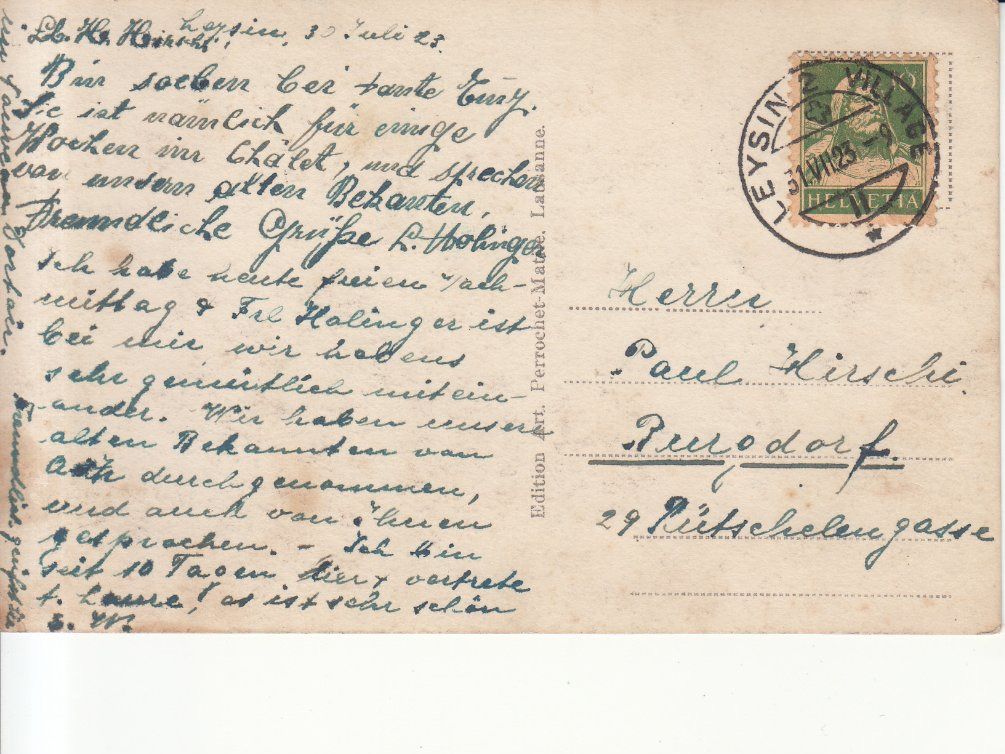 Leysin, 30 Juli 23.
Lb. H. Hirschi,
Bin soeben bei tante Emy.
Sie ist nämlich für einige
Wochen im Châlet, und sprechen
von unsern alten Bekanten.
Freundliche Grüße L. Holinger
Ich habe heute freien Nach-
mittag & Frl Holinger ist
bei mir, wir habens
sehr gemütlich mitein-
ander. Wir haben unsere
alten Bekannten von
durchgenommen,
und auch von Ihnen
gesprochen. – Ich bin
seit 10 Tagen hier & vertrete
t. es ist sehr schön
im
Freundlich grüßt Sie
E. W.
Edition Art. Perrochet-Matile, Lausanne.
LEYSIN 2 VILLAGE
31.VII.23 - 9
II
10
HELVETIA
Herrn
Paul Hirschi
Burgdorf.
29 Rütschelengasse